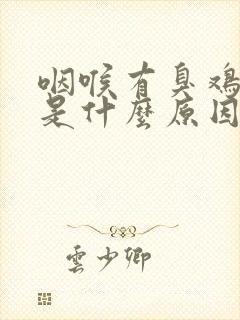 咽喉有臭鸡
是什麼原因
雲少卿